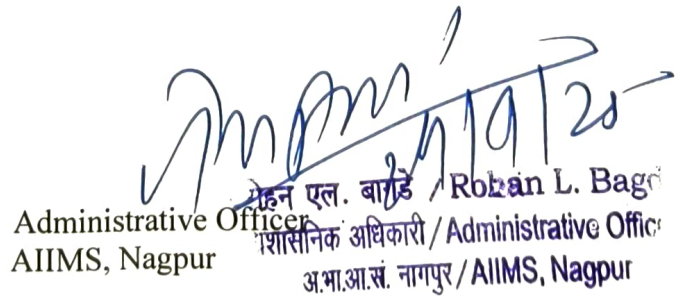 Administrative Officer
AIIMS, Nagpur
एल. बागडे / Rohan L.
अधिकारी / Administrative
अ.भा.आ.सं. नागपुर / AIIMS, Nagpur